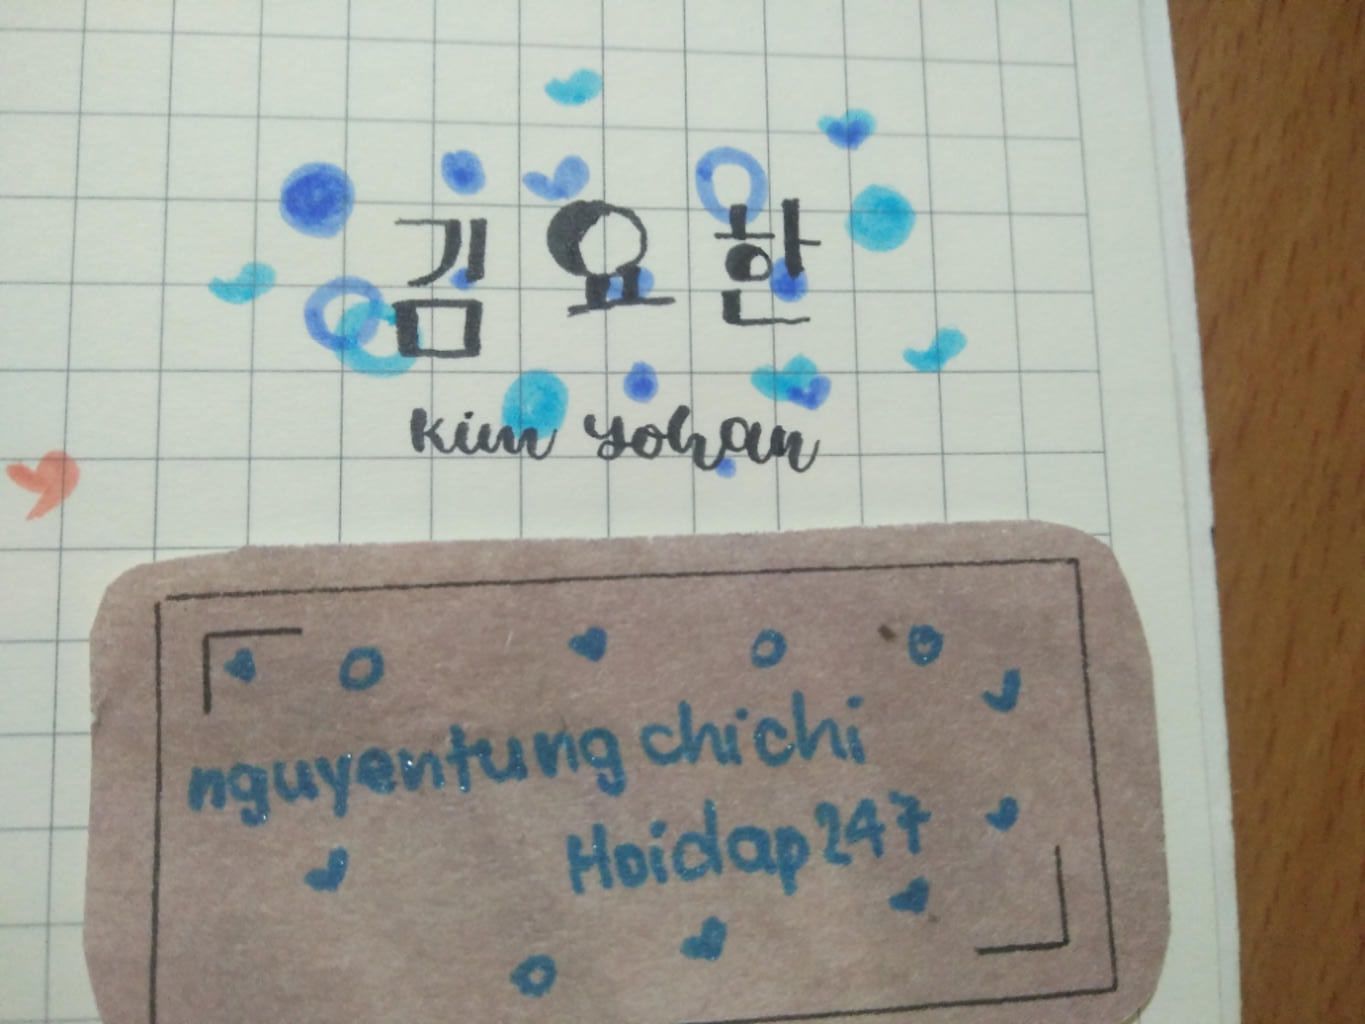 김요한
kim yohan
nguyentung chi chi
Hoidap247